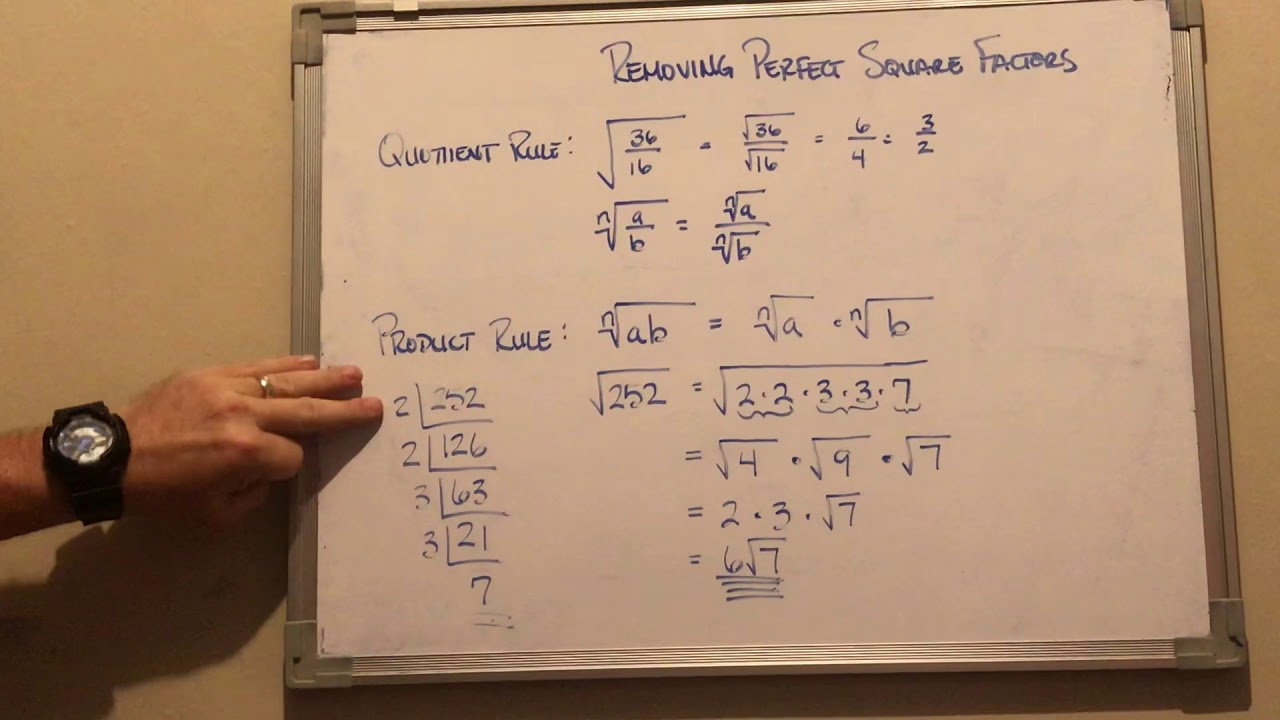 REMOVING PERFECT SQUARE FACTORS
QUOTIENT RULE: √(36/16) = √36/√16 = 6/4 = 3/2
ⁿ√(a/b) = ⁿ√a/ⁿ√b
PRODUCT RULE: ⁿ√ab = ⁿ√a · ⁿ√b
√252 = √2·2·3·3·7
= √4 · √9 · √7
= 2 · 3 · √7
= 6√7
2 252
2 126
3 63
3 21
7